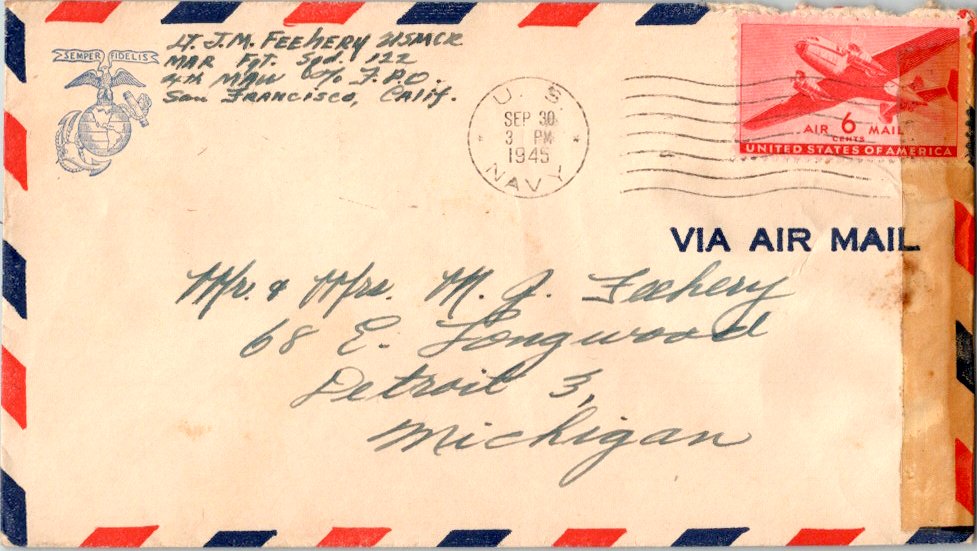 SEMPER FIDELIS
Lt. J.M. FEEHERY USMCR
MAR Fgt. Sqd. 122
4th MAW c/o F.P.O.
San FRANCisco, CAlif.
U. S.
SEP 30
3 PM
1945
NAVY
AIR 6 MAIL
CENTS
UNITED STATES OF AMERICA
VIA AIR MAIL
Mr. & Mrs. M. J. Feehery
68 E. Longwood
Detroit 3,
Michigan